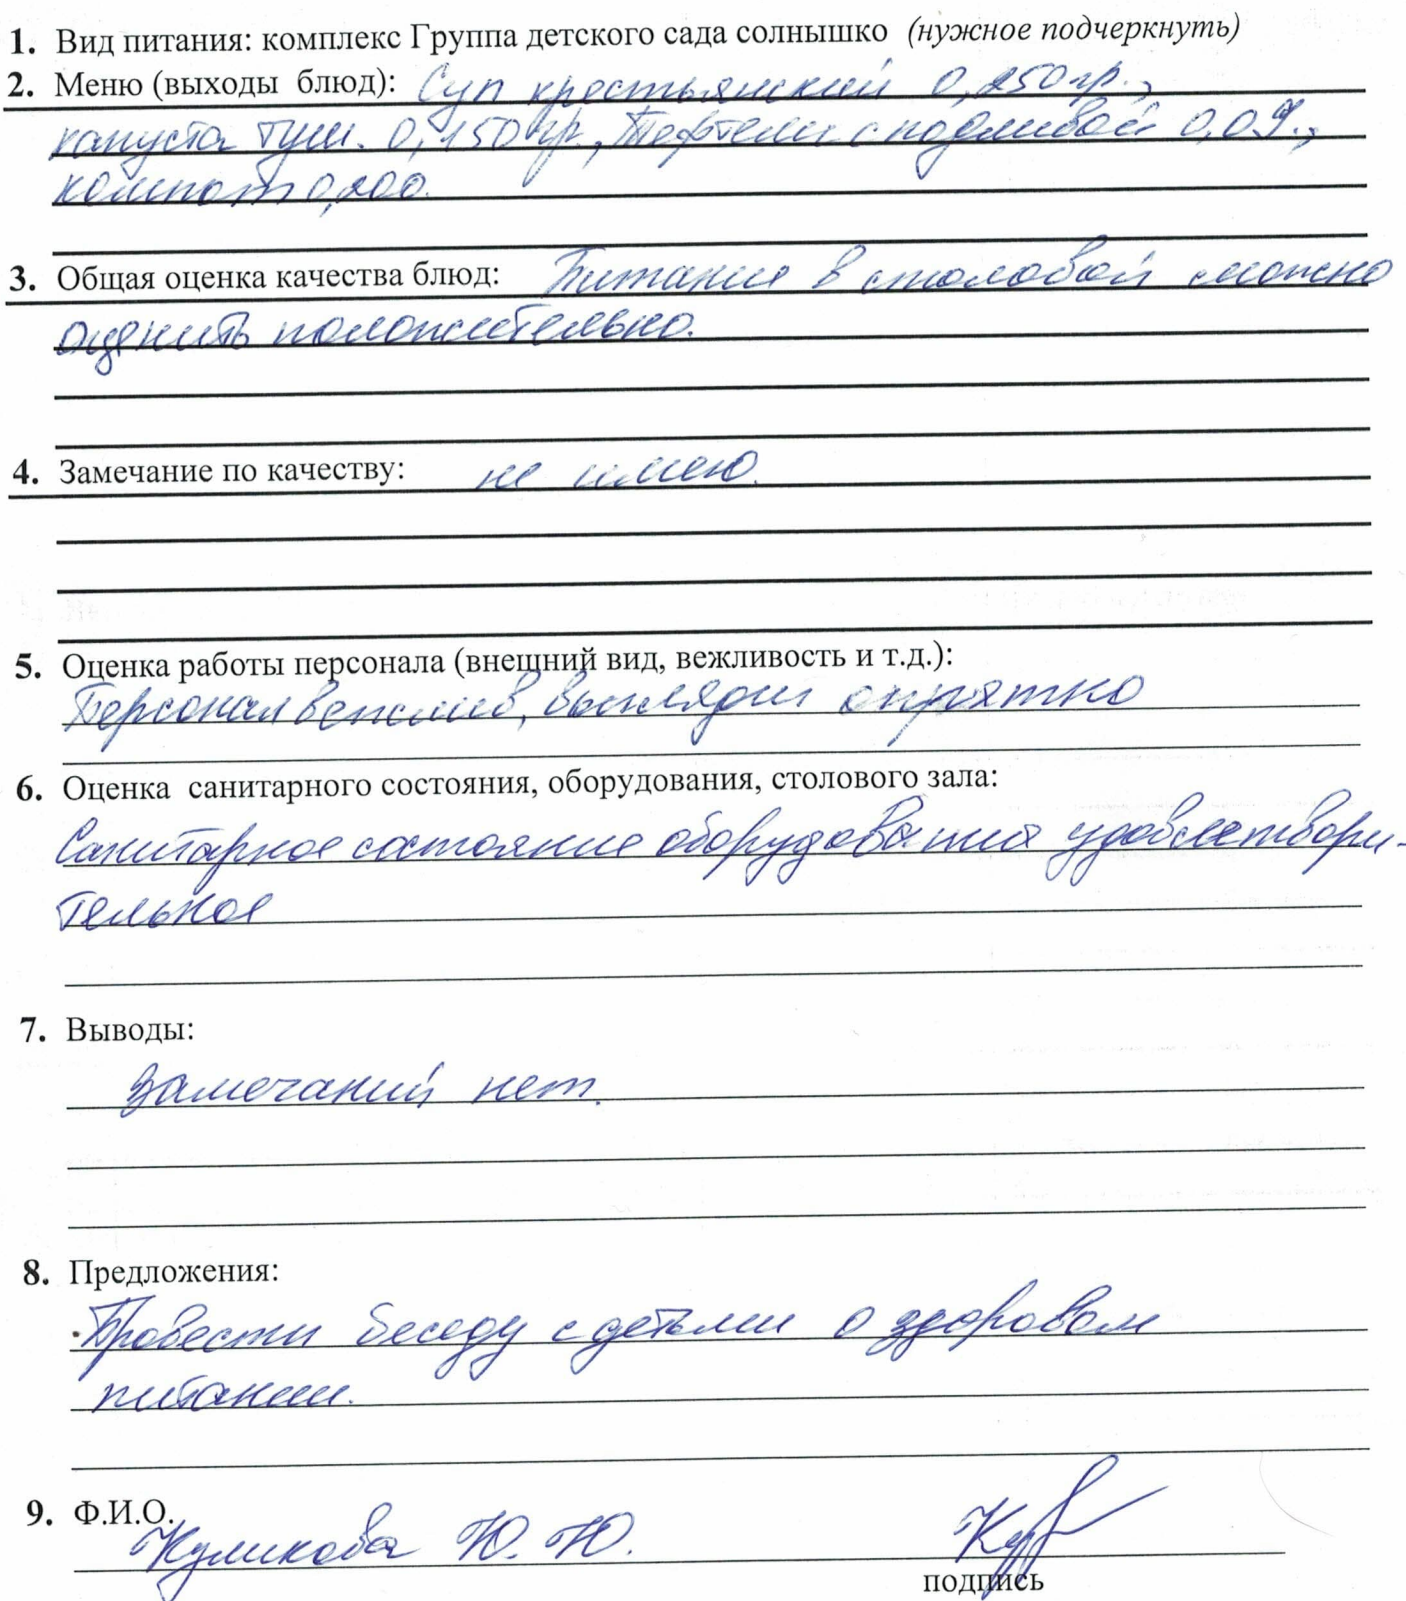 1. Вид питания: комплекс Группа детского сада солнышко (нужное подчеркнуть)
2. Меню (выходы блюд): Суп крестьянский 0,250гр.,
капуста туш. 0,150гр., Тефтели с подливой 0,09.,
компот 0,200.
3. Общая оценка качества блюд: Питание в столовой можно
оценить положительно.
4. Замечание по качеству: не имею.
5. Оценка работы персонала (внешний вид, вежливость и т.д.):
Персонал вежлив, выглядит опрятно
6. Оценка санитарного состояния, оборудования, столового зала:
Санитарное состояние оборудования удовлетвори-
тельное
7. Выводы:
Замечаний нет.
8. Предложения:
Провести беседу с детьми о здоровом
питании.
9. Ф.И.О.
Куликова Ю. Ю.
подпись